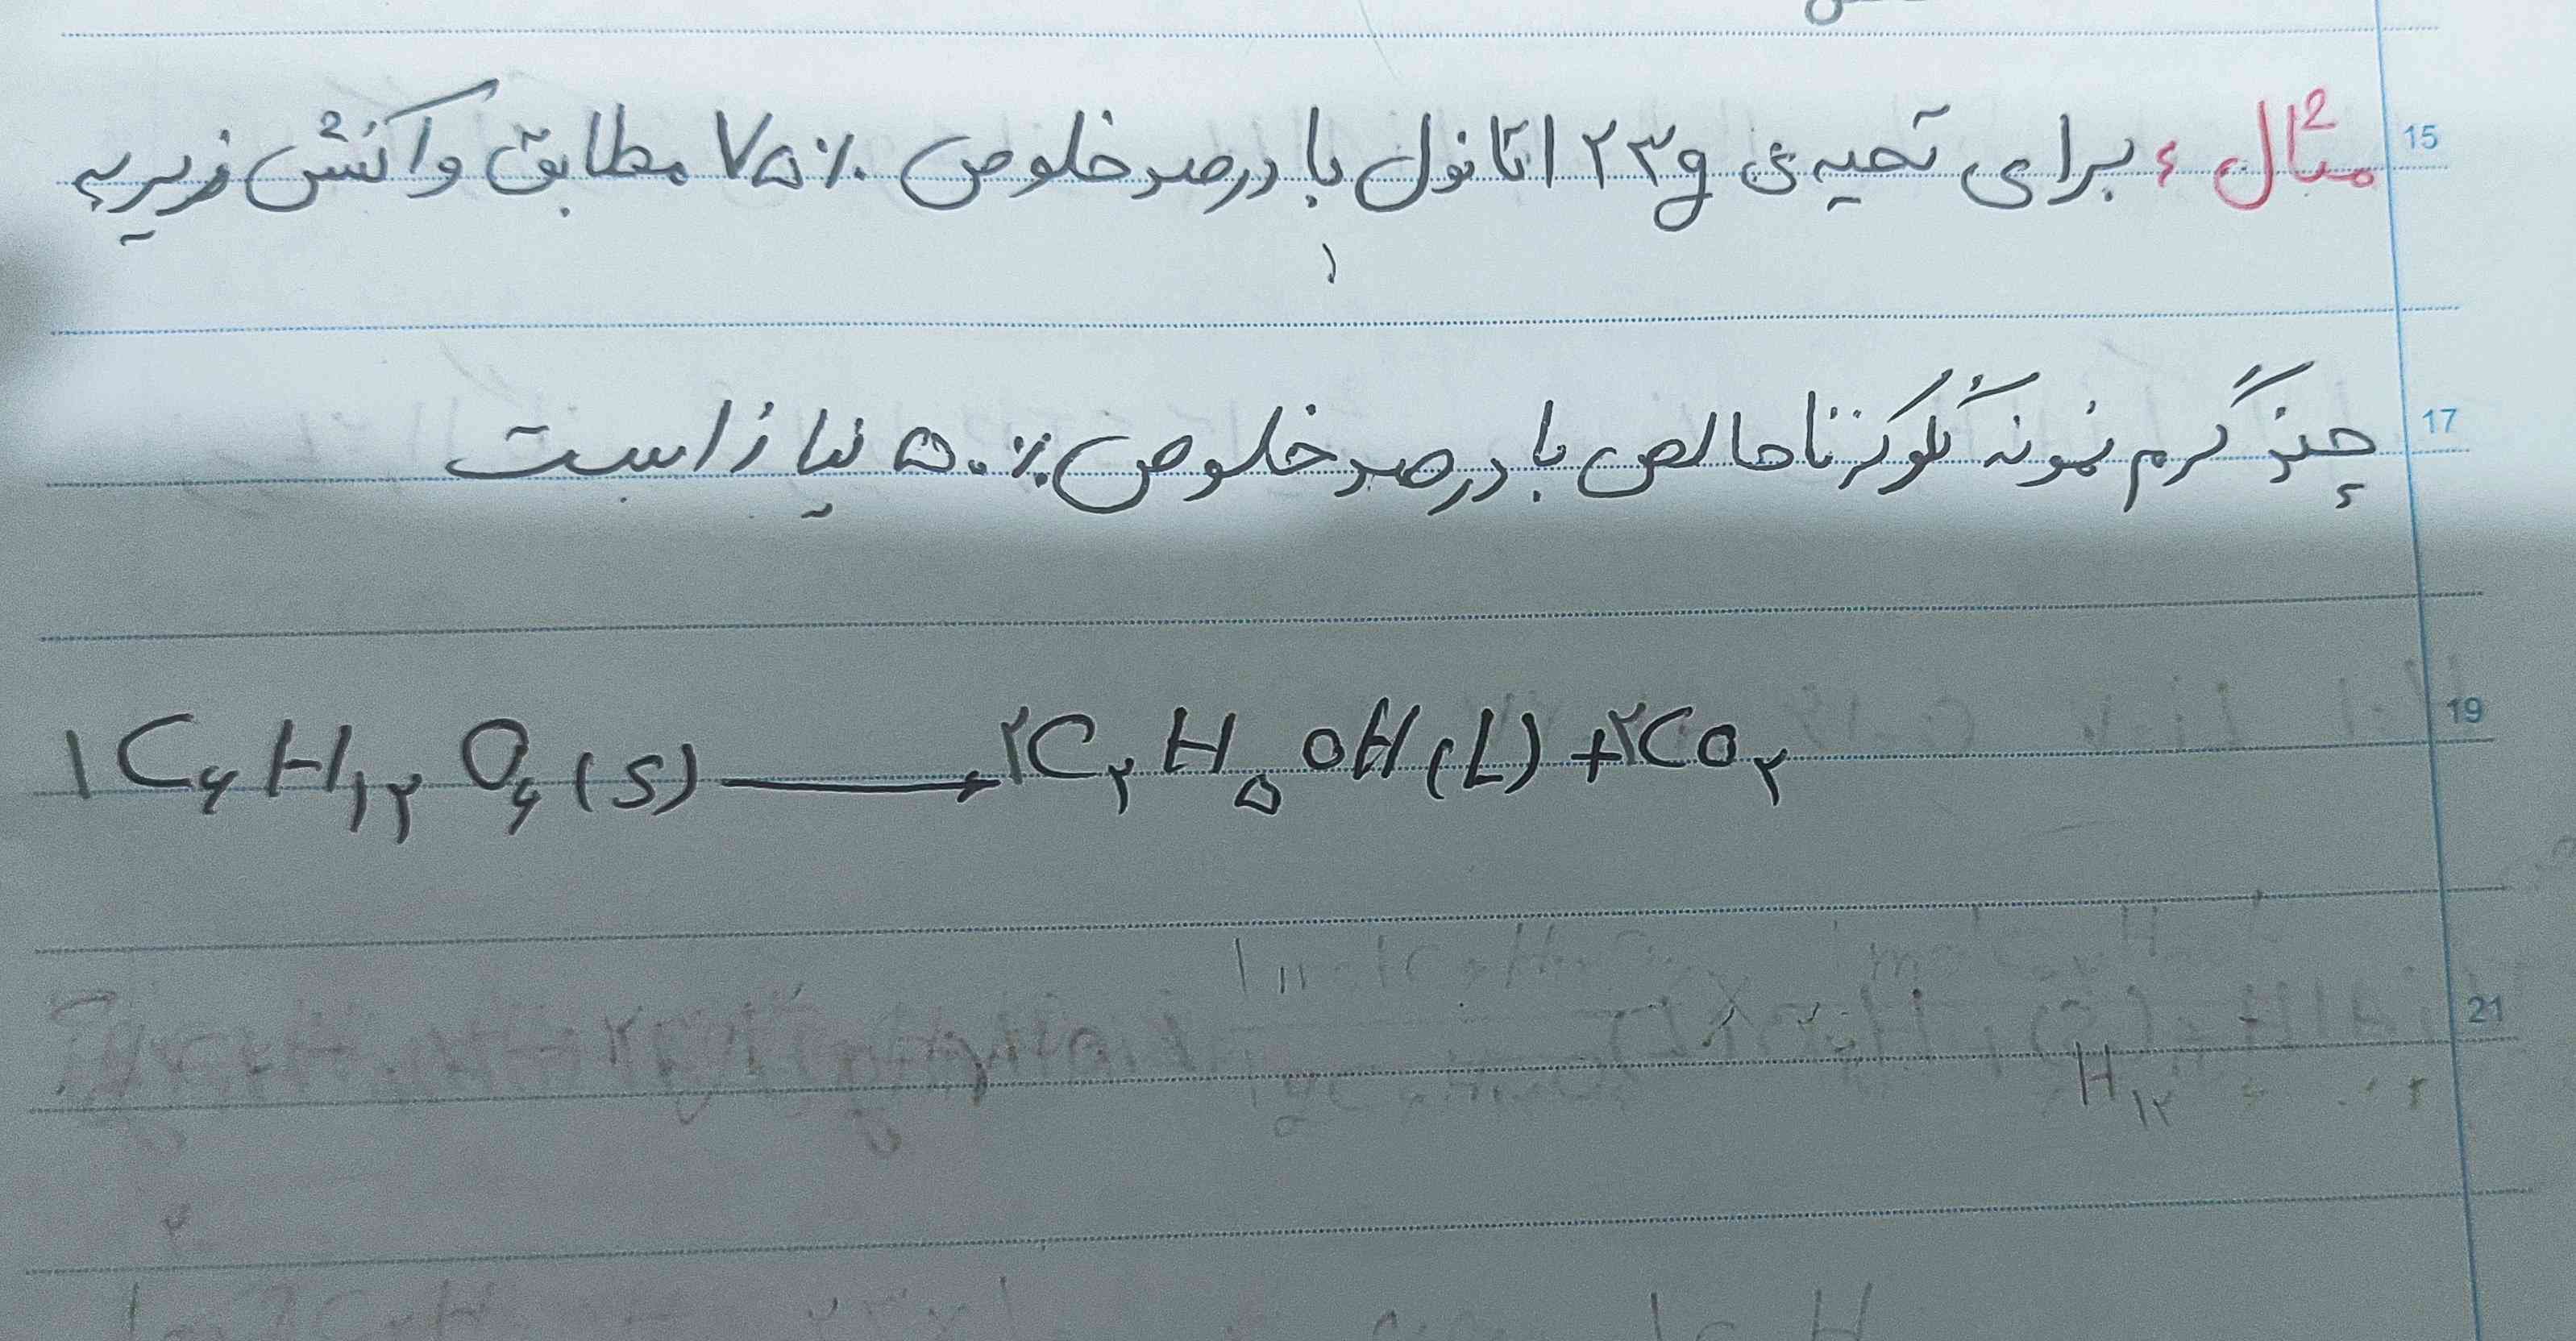 15
مثال : برای تحیه ی ۲۳g اتانول با درصد خلوص ۷۵٪ مطابق واکنش زیر به
17
چند گرم نمونه گلوکز ناخالص با درصد خلوص ۵۰٪ نیاز است
19
۱C۶H۱۲O۶(s) → ۲C۲H۵OH(L) + ۲CO۲
21
H۱۲